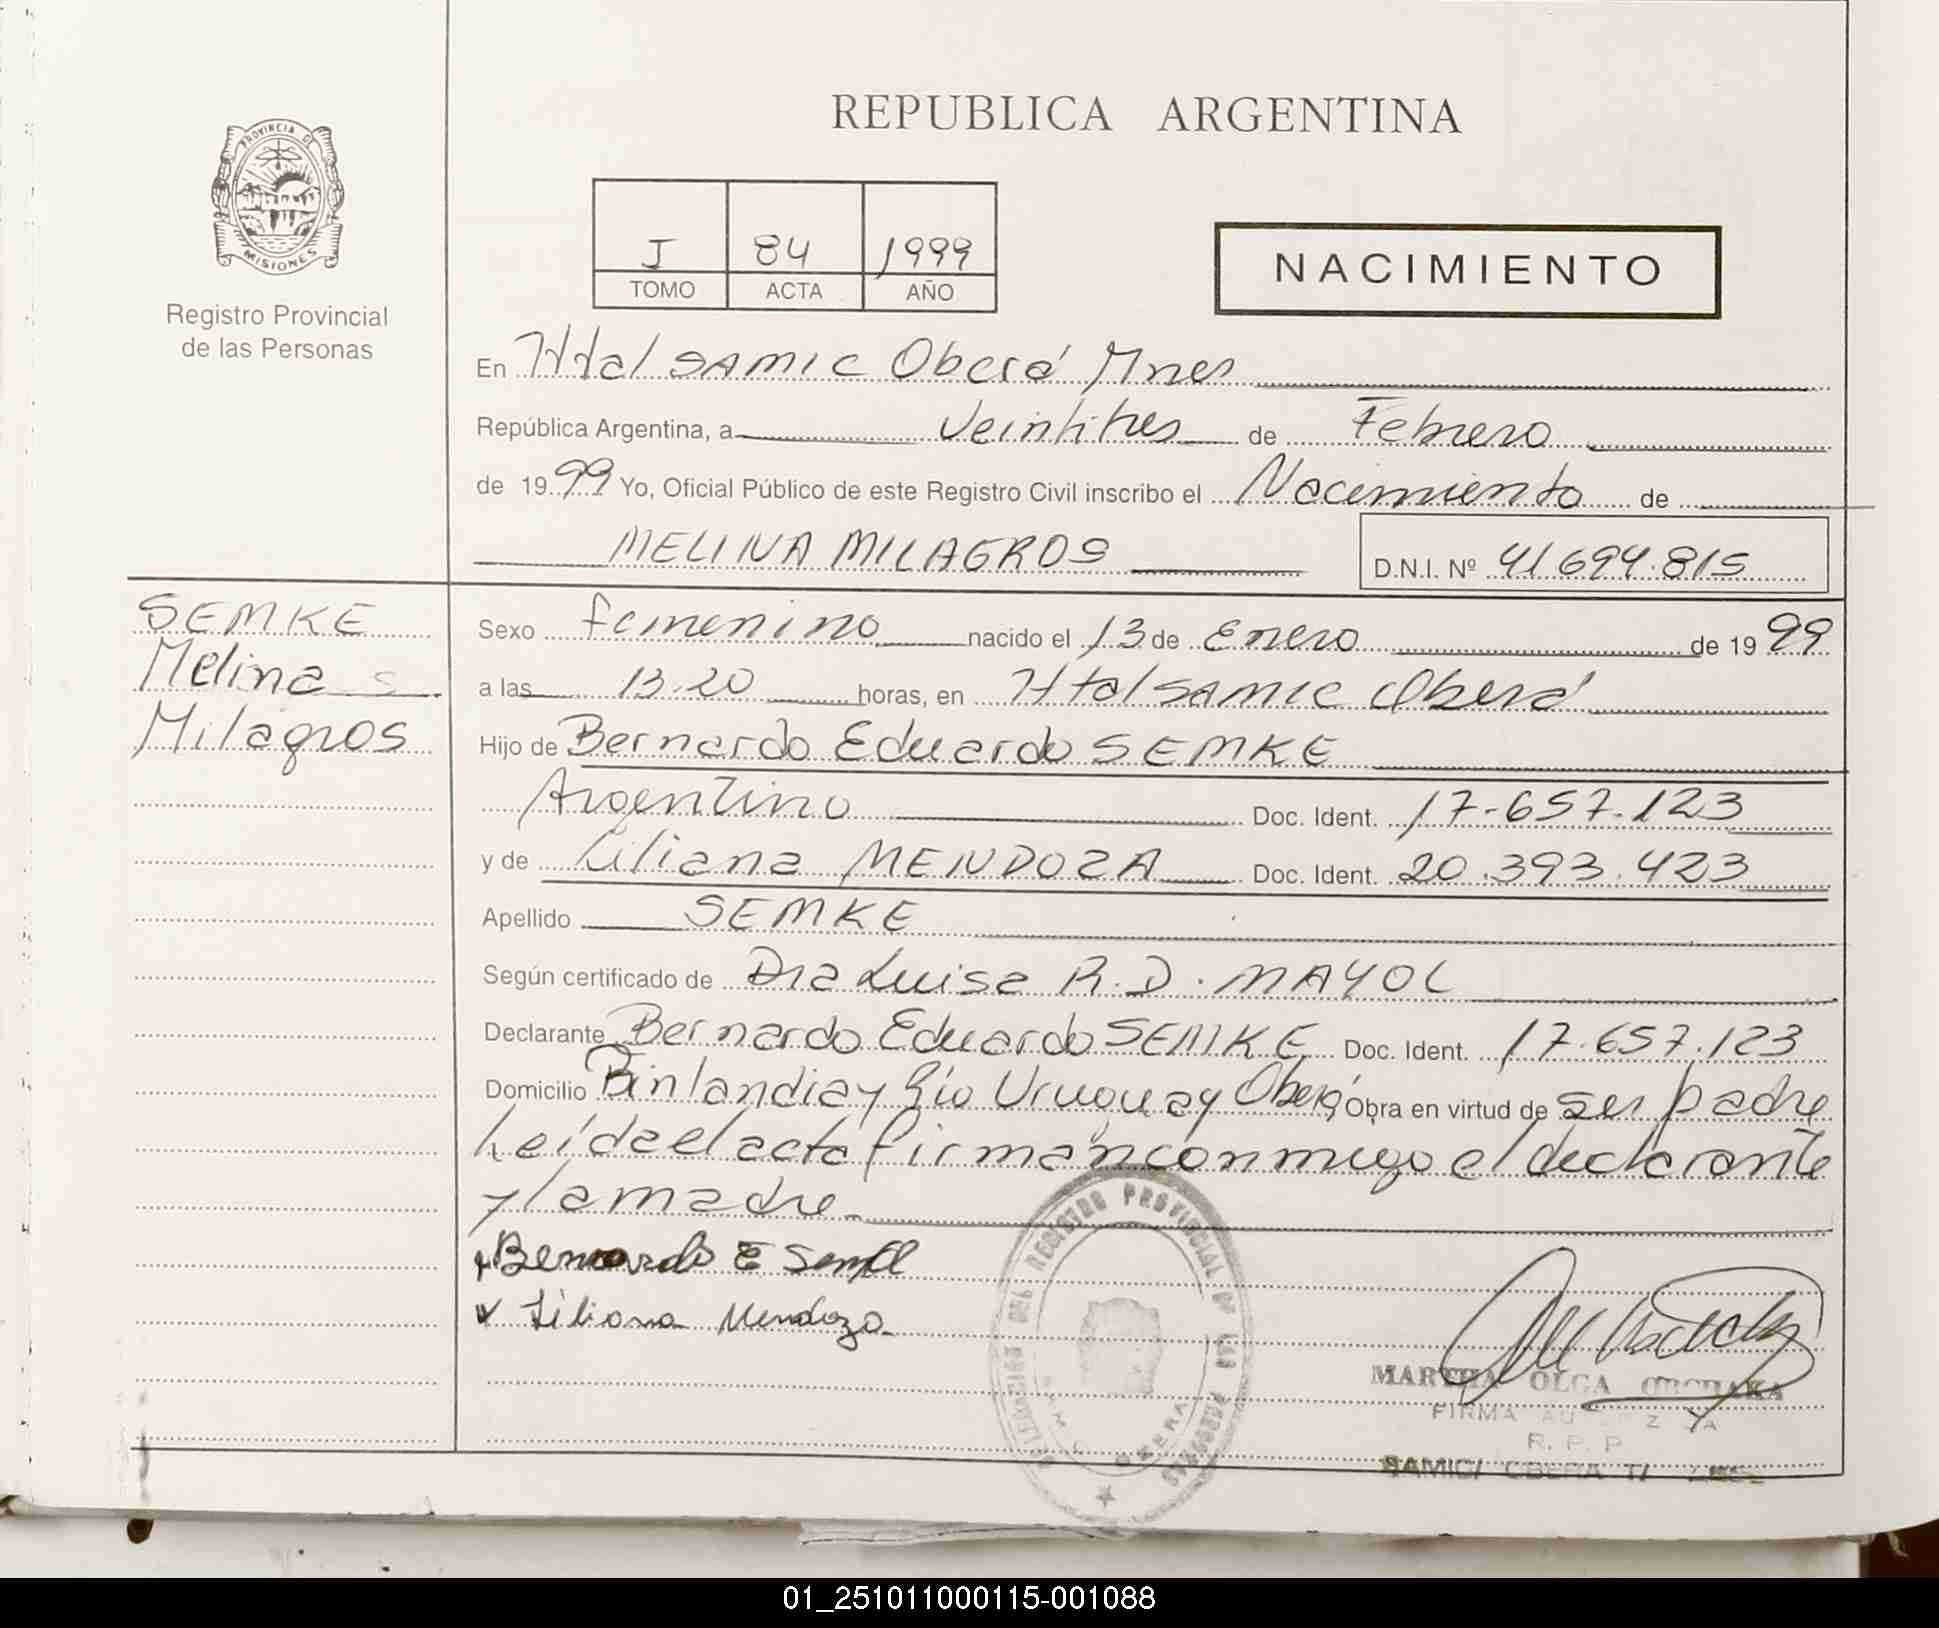 REPUBLICA ARGENTINA
PROVINCIA DE
MISIONES
Registro Provincial
de las Personas
I 84 1999
TOMO ACTA AÑO
NACIMIENTO
En Htal SAMIC Oberá Mnes
República Argentina, a Veintitres de Febrero
de 1999 Yo, Oficial Público de este Registro Civil inscribo el Nacimiento de
MELINA MILAGROS D.N.I. Nº 41694815
SEMKE
Melina
Milagros
Sexo femenino nacido el 13 de Enero de 1999
a las 13.20 horas, en Htal SAMIC Oberá
Hijo de Bernardo Eduardo SEMKE
Argentino Doc. Ident. 17.657.123
y de Liliana MENDOZA Doc. Ident. 20.393.423
Apellido SEMKE
Según certificado de Dra Luisa R.D. MAYOL
Declarante Bernardo Eduardo SEMKE Doc. Ident. 17.657.123
Domicilio Finlandia y Río Uruguay Oberá Obra en virtud de ser padre
Leída el acta firman conmigo el declarante
y la madre
Bernardo E
Liliana Mendoza
DEL REGISTRO PROVINCIAL DE LAS PERSONAS
OBERA
MARTHA OLGA
FIRMA
R. P. P
SAMIC/ OBERA
01_251011000115-001088